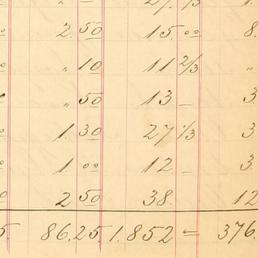 27 1/3
2. 50 15. 00 8.
" 10 11 2/3 "
" 50 13 _ 3
1. 30 27 1/3 3
1. 00 12 _ 3
0 2 50 38. 12
5 86,25 1.852 = 376.